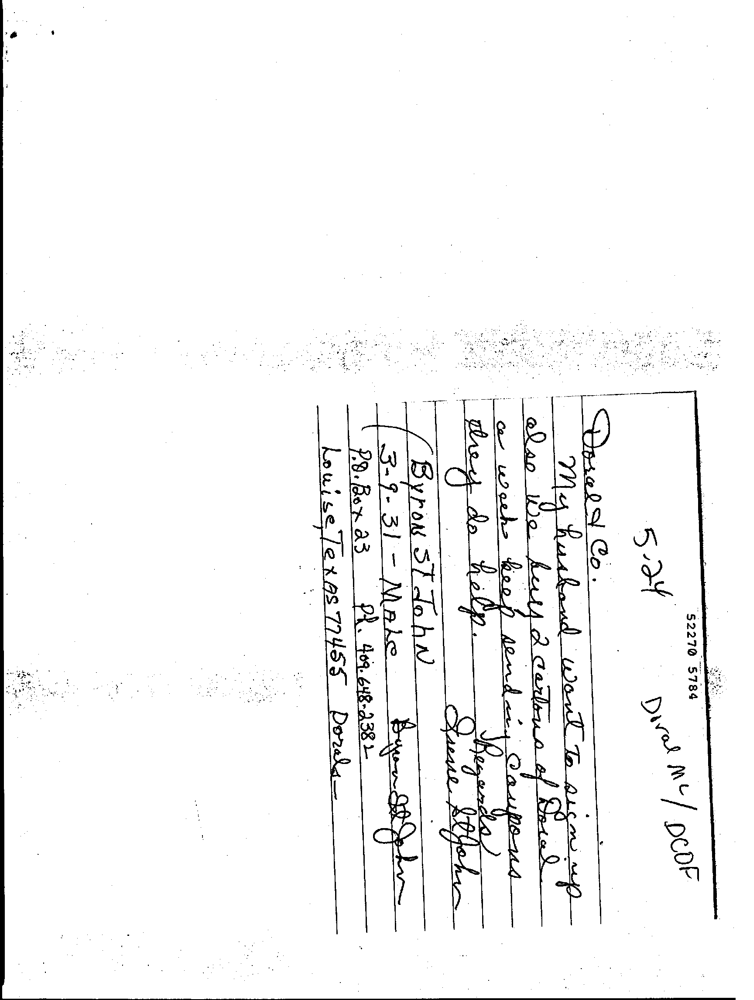 52270 5784
5-24 Dival MC/DCDF
Doral & Co.
My husband want to sicn up
also we buy 2 cartons of Doral
a week keep sending Coupons
they do help. Regards,
Irene St John
Byron St John
3-9-31 - MALE Byron St John
P.O. Box 23 Ph. 409-648-2382
Louise, TexAS 77455 Dorals-